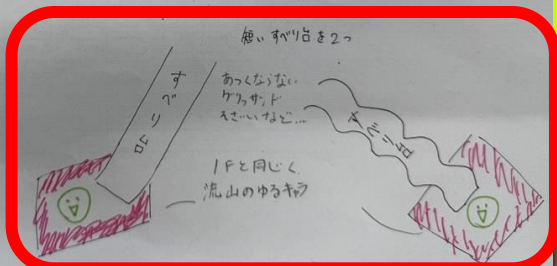 短いすべり台を2つ
すべり台
あつくならない
グリッサンド
そざいなど...
すべり台
1Fと同じく
流山のゆるキャラ